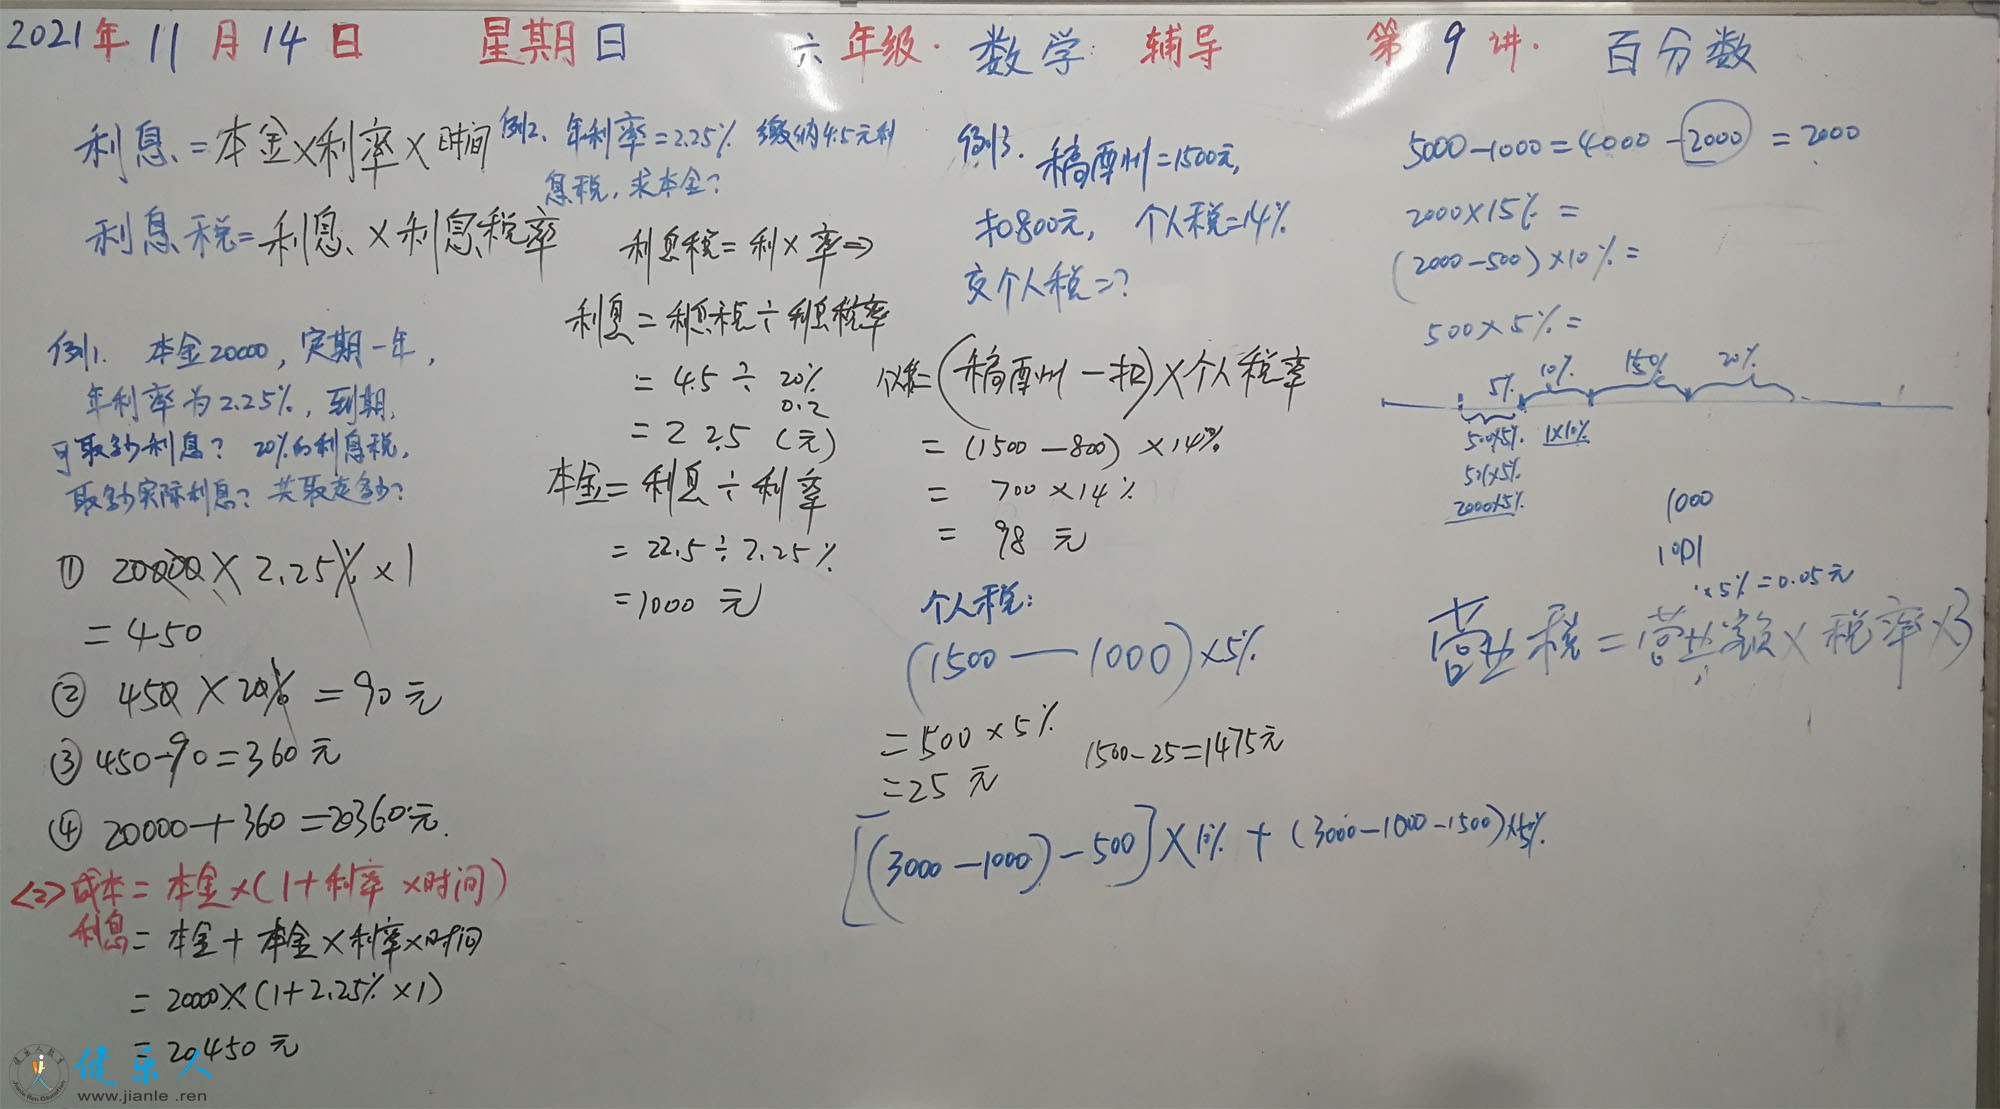 2021年11月14日 星期日 六年级·数学 辅导 第9讲. 百分数
利息=本金×利率×时间
利息税=利息×利息税率
例1. 本金20000,定期一年,
年利率为2.25%,到期,
可取多少利息? 20%的利息税,
取多少实际利息? 共取走多少?
① 20000×2.25%×1
=450
② 450×20%=90元
③ 450-90=360元
④ 20000+360=20360元.
<2>成本=本金×(1+利率×时间)
利息=本金+本金×利率×时间
=20000×(1+2.25%×1)
=20450元
例2、年利率=2.25% 缴纳4.5元利
息税,求本金?
利息税=利×率⇒
利息=利息税÷利息税率
=4.5÷20%
0.2
=22.5(元)
本金=利息÷利率
=22.5÷2.25%
=1000元
例3. 稿酬=1500元,
扣800元, 个人税=14%
交个人税=?
(稿酬-扣)×个人税率
=(1500-800)×14%
=700×14%
=98元
个人税:
(1500-1000)×5%
=500×5%
=25元
1500-25=1475元
[(3000-1000)-500]×10%+(3000-1000-1500)×5%
5000-1000=4000-2000=2000
2000×15%=
(2000-500)×10%=
500×5%=
5% 10% 15% 20%
500×5% 1×10%
501×5%
2000×5%
1000
1001
1×5%=0.05元
营业税=营业额×税率
健乐人
www.jianle.ren